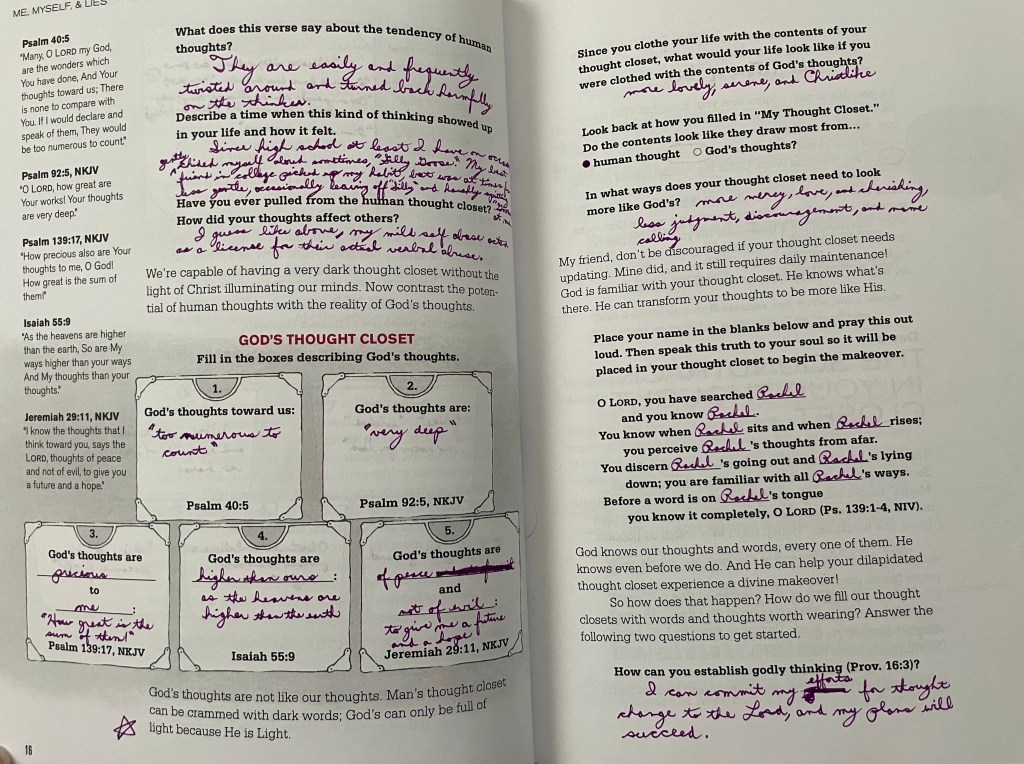 ME, MYSELF, & LIES
Psalm 40:5
"Many, O LORD my God,
are the wonders which
You have done, And Your
thoughts toward us; There
is none to compare with
You. If I would declare and
speak of them, They would
be too numerous to count."
Psalm 92:5, NKJV
"O LORD, how great are
Your works! Your thoughts
are very deep."
Psalm 139:17, NKJV
"How precious also are Your
thoughts to me, O God!
How great is the sum of
them!"
Isaiah 55:9
"As the heavens are higher
than the earth, So are My
ways higher than your ways
And My thoughts than your
thoughts."
Jeremiah 29:11, NKJV
"I know the thoughts that I
think toward you, says the
LORD, thoughts of peace
and not of evil, to give you
a future and a hope."
What does this verse say about the tendency of human
thoughts?
They are easily and frequently
twisted around and turned back harmfully
on the thinker.
Describe a time when this kind of thinking showed up
in your life and how it felt.
Since high school at least I have on
gently
chided myself aloud sometimes, "Silly Goose." My best
friend in college picked up my habit but was at times
less gentle, occasionally leaving off "silly" and harshly
at me
Have you ever pulled from the human thought closet?
How did your thoughts affect others?
I guess like above, my mild self abuse acted
as a license for their actual verbal abuse.
We're capable of having a very dark thought closet without the
light of Christ illuminating our minds. Now contrast the poten-
tial of human thoughts with the reality of God's thoughts.
GOD'S THOUGHT CLOSET
Fill in the boxes describing God's thoughts.
1.
God's thoughts toward us:
"too numerous to
count"
Psalm 40:5
2.
God's thoughts are:
"very deep"
Psalm 92:5, NKJV
3.
God's thoughts are
precious
to
me:
"How great is the
sum of them!"
Psalm 139:17, NKJV
4.
God's thoughts are
higher than ours:
as the heavens are
higher than the earth
Isaiah 55:9
5.
God's thoughts are
of peace
and
not of evil:
to give me a future
and a hope
Jeremiah 29:11, NKJV
God's thoughts are not like our thoughts. Man's thought closet
can be crammed with dark words; God's can only be full of
light because He is Light.
16
Since you clothe your life with the contents of your
thought closet, what would your life look like if you
were clothed with the contents of God's thoughts?
more lovely, serene, and Christlike
Look back at how you filled in "My Thought Closet."
Do the contents look like they draw most from...
● human thought ○ God's thoughts?
In what ways does your thought closet need to look
more like God's? more mercy, love, and cherishing,
less judgment, discouragement, and name
calling
My friend, don't be discouraged if your thought closet needs
updating. Mine did, and it still requires daily maintenance!
God is familiar with your thought closet. He knows what's
there. He can transform your thoughts to be more like His.
Place your name in the blanks below and pray this out
loud. Then speak this truth to your soul so it will be
placed in your thought closet to begin the makeover.
O LORD, you have searched Rachel
and you know Rachel.
You know when Rachel sits and when Rachel rises;
you perceive Rachel's thoughts from afar.
You discern Rachel's going out and Rachel's lying
down; you are familiar with all Rachel's ways.
Before a word is on Rachel's tongue
you know it completely, O LORD (Ps. 139:1-4, NIV).
God knows our thoughts and words, every one of them. He
knows even before we do. And He can help your dilapidated
thought closet experience a divine makeover!
So how does that happen? How do we fill our thought
closets with words and thoughts worth wearing? Answer the
following two questions to get started.
How can you establish godly thinking (Prov. 16:3)?
I can commit my efforts for thought
change to the Lord, and my plans will
succeed.